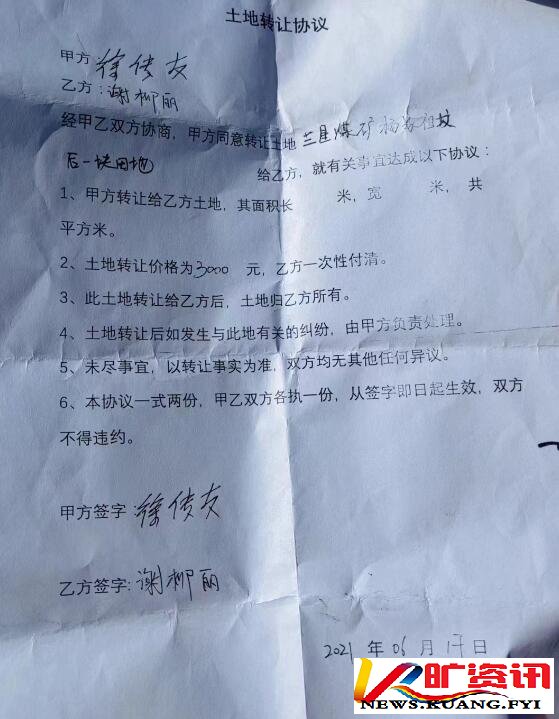 土地转让协议
甲方 徐传友
乙方：谢柳丽
经甲乙双方协商，甲方同意转让土地 兰星煤矿杨家祖坟
后一块田地 给乙方，就有关事宜达成以下协议：
1、甲方转让给乙方土地，其面积长 米，宽 米，共
平方米。
2、土地转让价格为3000 元，乙方一次性付清。
3、此土地转让给乙方后，土地归乙方所有。
4、土地转让后如发生与此地有关的纠纷，由甲方负责处理。
5、未尽事宜，以转让事实为准，双方均无其他任何异议。
6、本协议一式两份，甲乙双方各执一份，从签字即日起生效，双方
不得违约。
甲方签字：徐传友
乙方签字：谢柳丽
2021 年 06 月 日
旷资讯
NEWS.KUANG.FYI